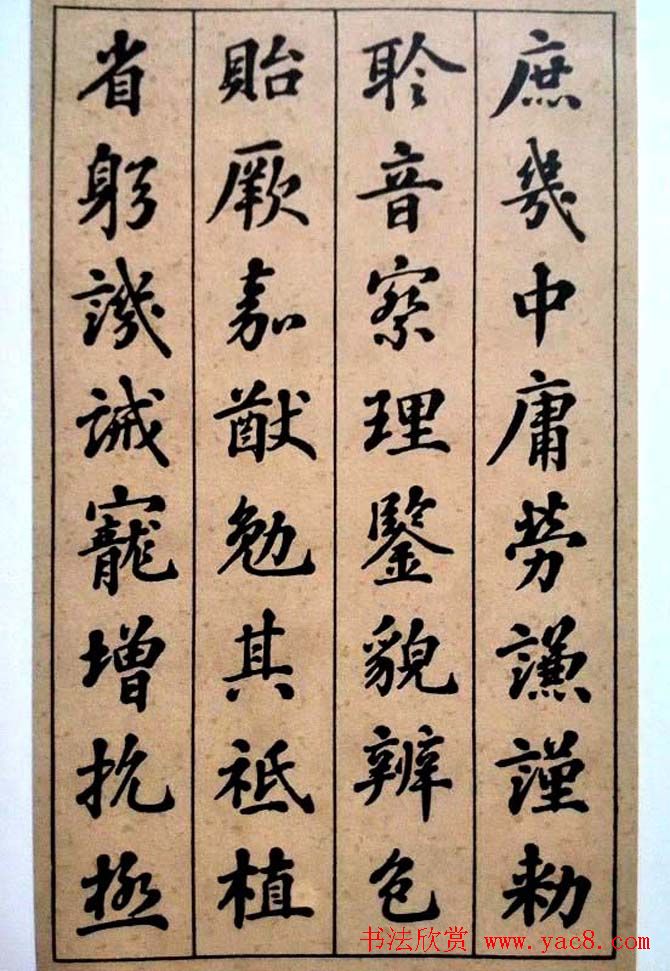 庶幾中庸勞謙謹勅
聆音察理鑒貌辨色
貽厥嘉猷勉其祗植
省躬譏誡寵增抗極
书法欣赏 www.yac8.com